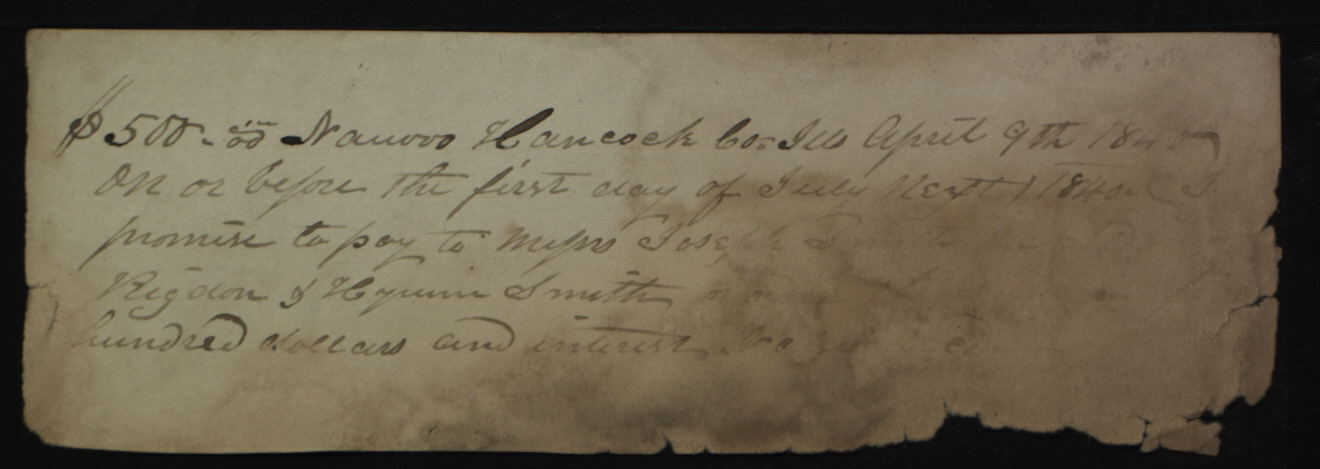 $500.00 Nauvoo Hancock Co. Ills April 9th 1840
On or before the first day of July Next 1840 I
promise to pay to Messrs Joseph Smith
Rigdon & Hyrum Smith
hundred dollars and interest